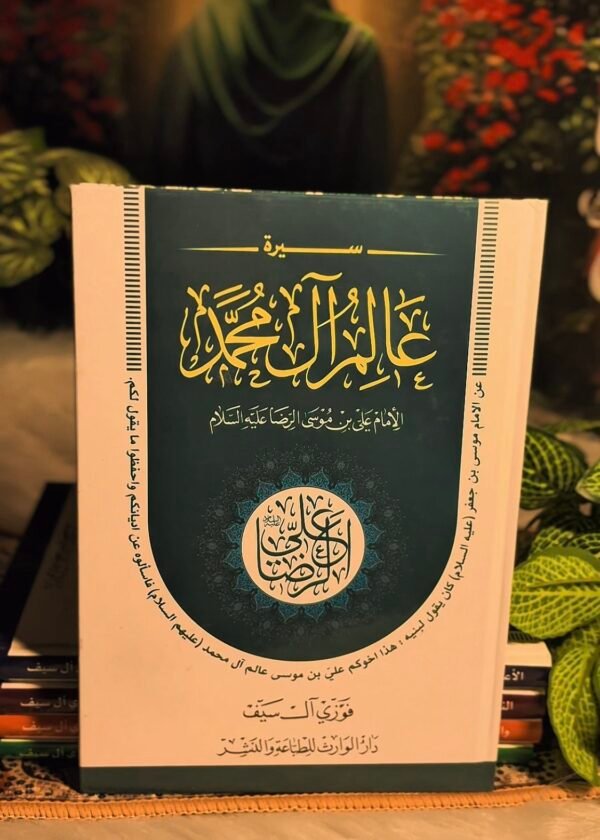 سيرة
عَالِمُ آلِ مُحَمَّد
الإمَام عَلِي بْن مُوسَى الرِّضَا عَلَيْهِ السَّلَام
عن الامام موسى بن جعفر (عليه السلام) كان يقول لبنيه : هذا اخوكم علي بن موسى عالم آل محمد (عليهم السلام) فاسألوه عن اديانكم واحفظوا ما يقول لكم.
عَلِيّ
الرِّضَا
فَوْزي آل سَيْف
دَارُ الوَارِث لِلطِّبَاعَةِ وَالنَّشْر
آل سيف
آل سيف
آل سيف